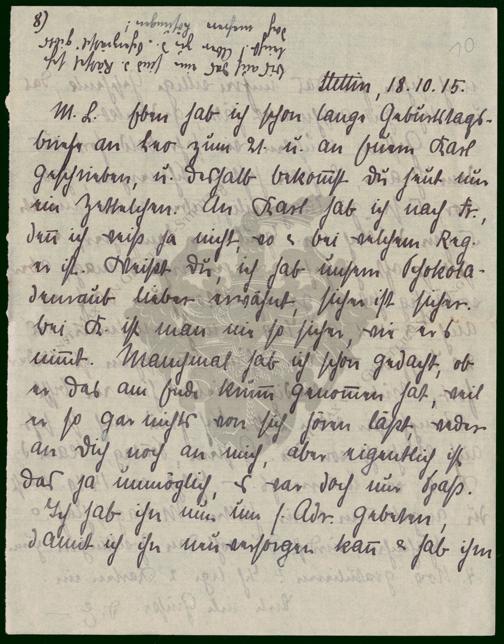 8)
10
Stettin, 18.10.15.
M. L. Eben hab ich schon lange Geburtstags-
briefe an Leo zum 21. u. an Euern Karl
geschrieben, u. deshalb bekommst Du heut nur
ein Zettelchen. An Karl hab ich nach Fr.,
deñ ich weiß ja nicht, wo & bei welchem Reg.
er ist. Weißt Du, ich hab unsern Schokola-
denraub lieber erwähnt, sicher ist sicher.
bei K ist man nie so sicher, wie er's
nim̄t. Manchmal hab ich schon gedacht, ob
er das am Ende krum̄ genommen hat, weil
er so gar nichts von sich hören läßt, weder
an Dich noch an mich, aber eigentlich ist
das ja unmöglich, es war doch nur Spaß.
Ich hab ihn nun um s. Adr. gebeten,
damit ich ihn neu versorgen kañ & hab ihm